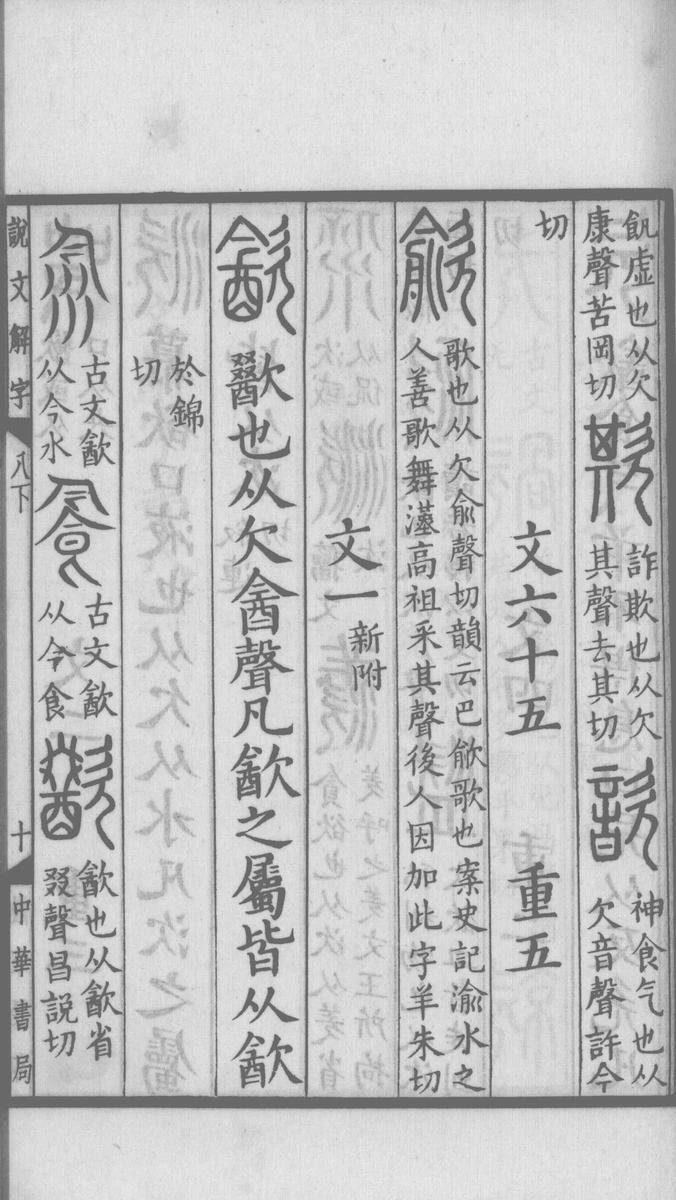 飢虛也从欠
康聲苦岡切
詐欺也从欠
其聲去其切
神食气也从
欠音聲許今
切
文六十五 重五
歌也从欠俞聲切韻云巴歈歌也案史記渝水之
人善歌舞漢高祖采其聲後人因加此字羊朱切
文一 新附
歠也从欠酓聲凡㱃之屬皆从㱃
於錦
切
古文㱃
从今水
古文㱃
从今食
㱃也从㱃省
叕聲昌說切
說文解字 八下 十 中華書局